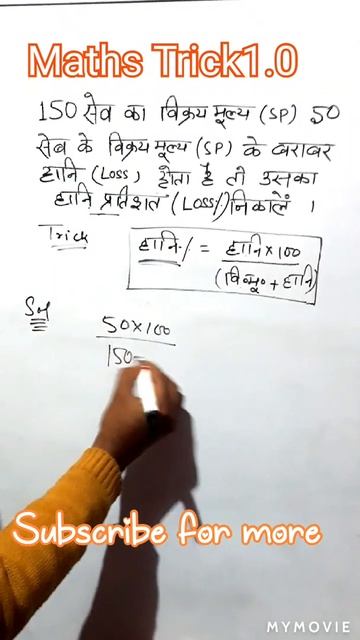 Maths Trick1.0
150 सेव का विक्रय मूल्य (SP) 50
सेव के विक्रय मूल्य (SP) के बराबर
हानि (Loss) होता है तो उसका
हानि प्रतिशत (Loss%) निकालें ।
Trick
हानि% = हानि × 100
(वि०मू० + हानि)
Sol
50×100
150
Subscribe for more
MYMOVIE